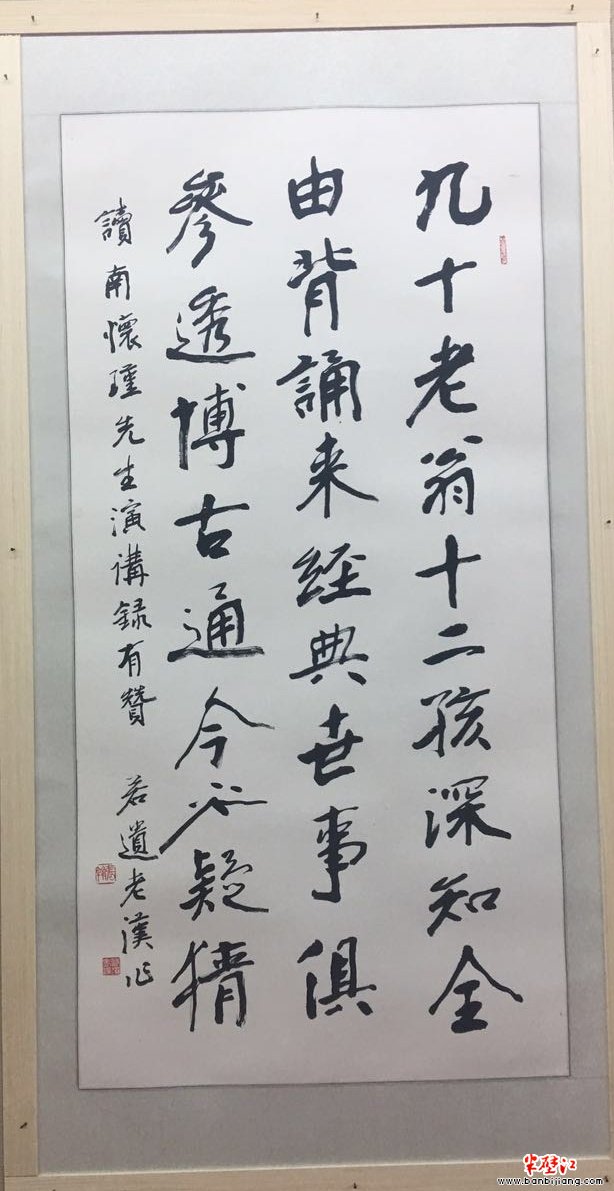 九十老翁十二孩深知全
由背誦来经典世事俱
參透博古通今不疑猜
讀南懷瑾先生演講録有贊
若遺老漢作
半壁江
www.banbijiang.com